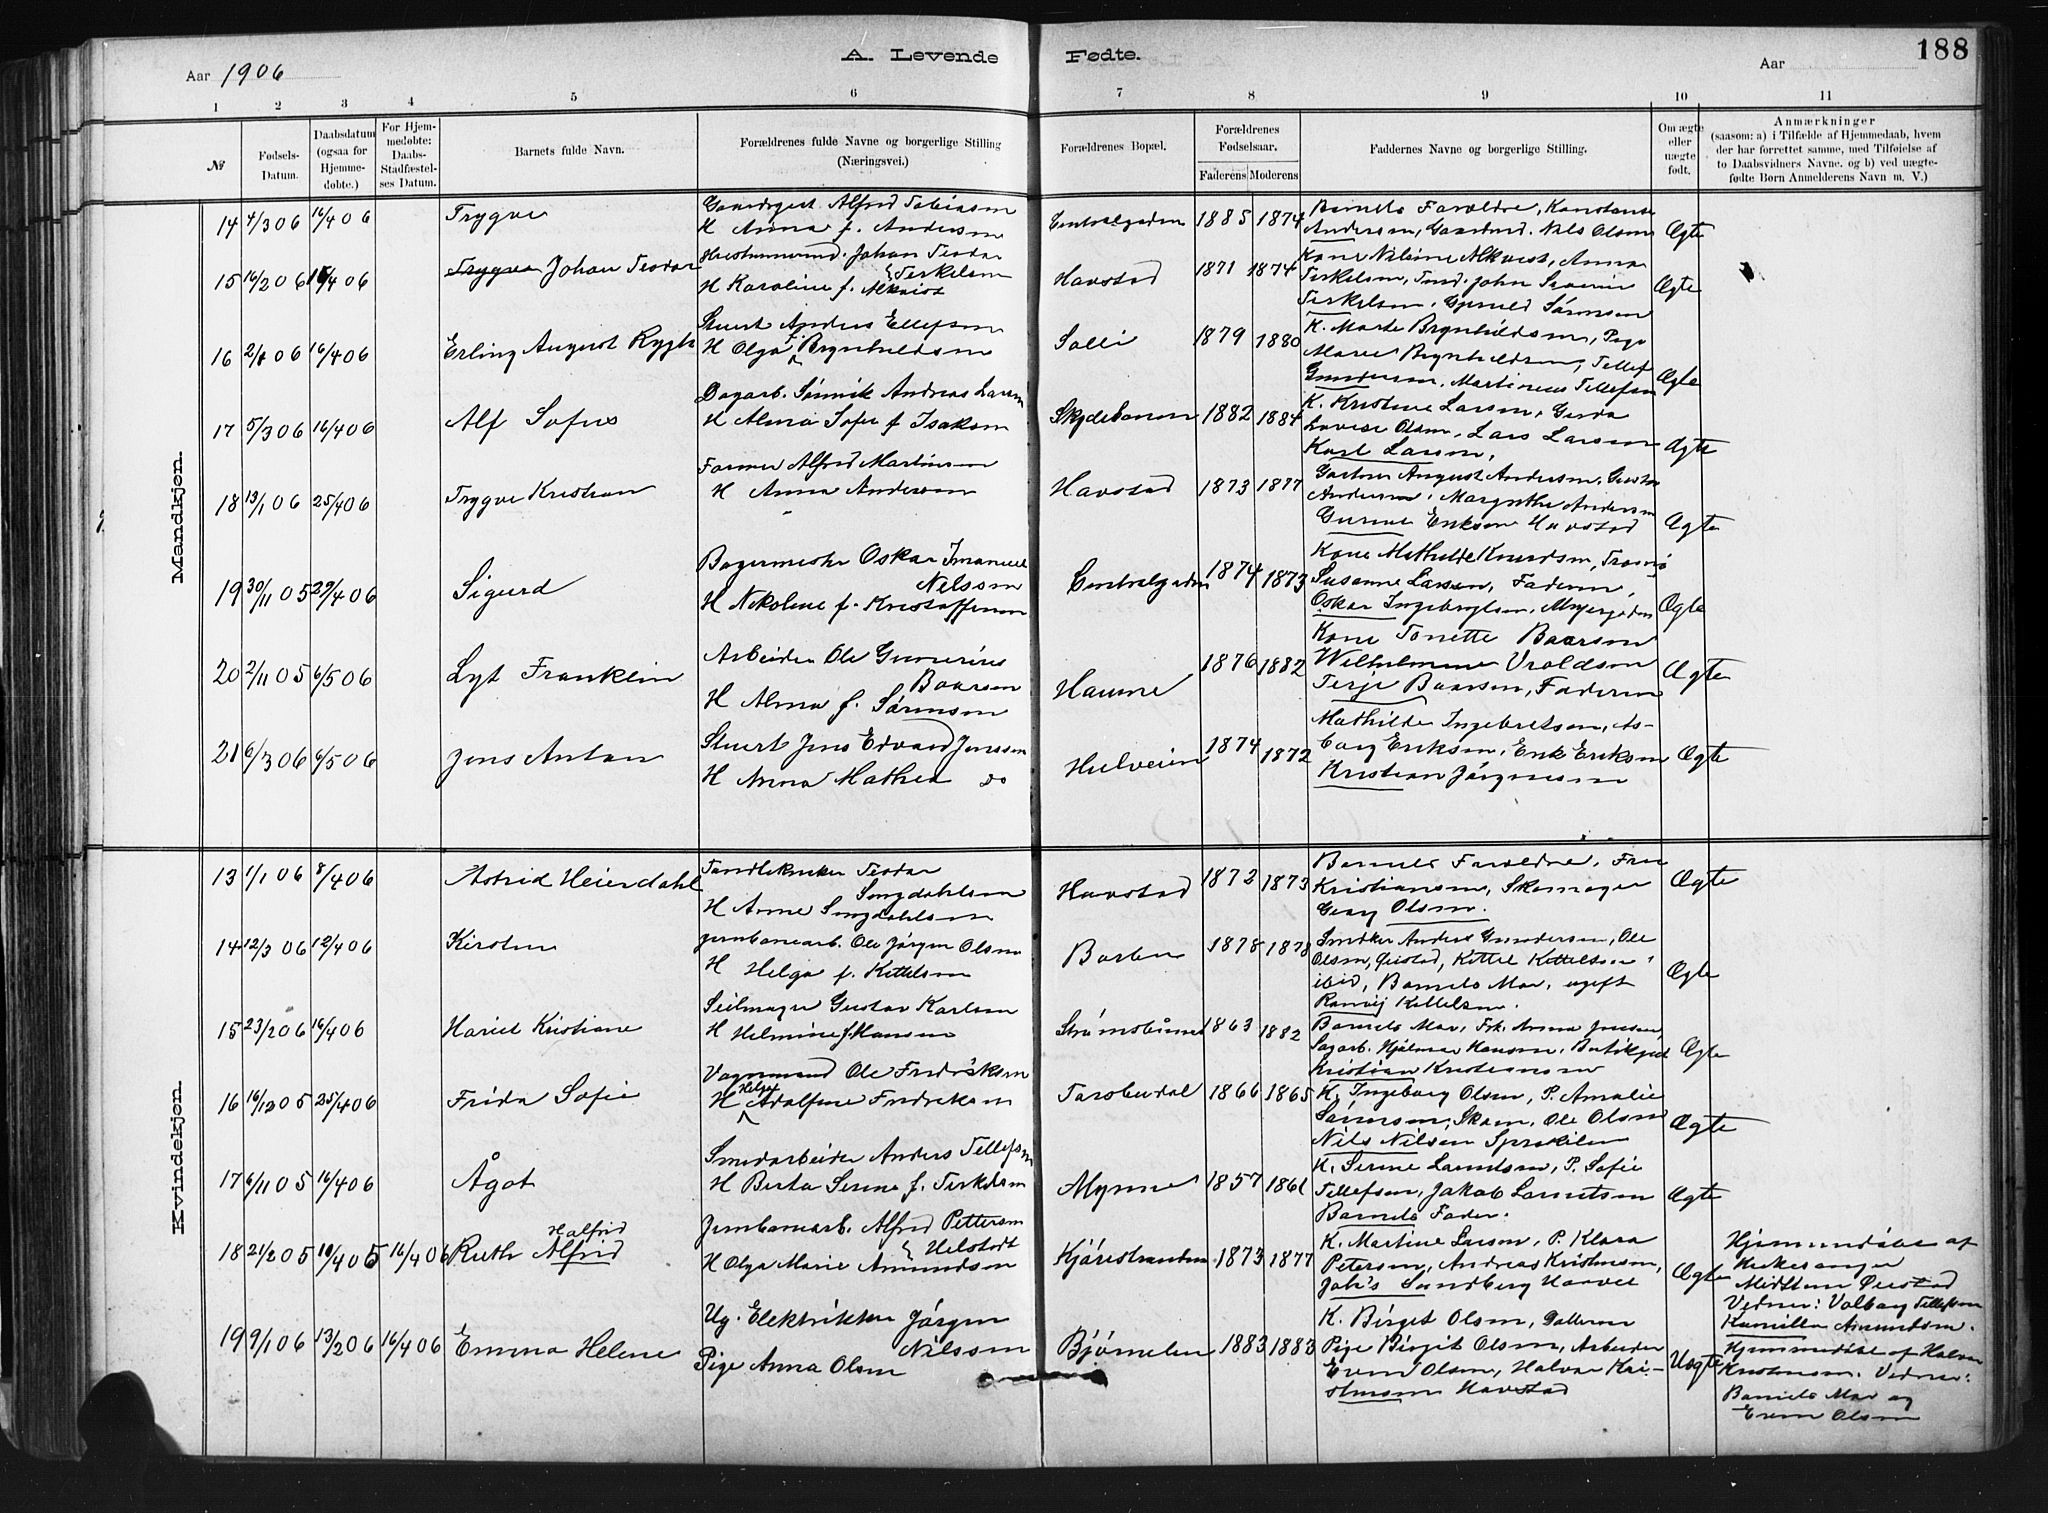 Aar 1906
A. Levende Fødte.
Aar
188
1 2 3 4 5 6 7 8 9 10 11
№
Fødsels-Datum.
Daabsdatum (ogsaa for Hjemmedøbte.)
For Hjemmedøbte: Daabs-Stadfæstelses Datum.
Barnets fulde Navn.
Forældrenes fulde Navne og borgerlige Stilling (Næringsvei.)
Forældrenes Bopæl.
Forældrenes Fødselsaar.
Faderens Moderens
Faddernes Navne og borgerlige Stilling.
Om ægte eller uægte født.
Anmærkninger
(saasom: a) i Tilfælde af Hjemmedaab, hvem
der har forrettet samme, med Tilføielse af
to Daabsvidners Navne, og b) ved uægte-
fødte Børn Anmelderens Navn m. V.)
Mandkjøn.
14 4/3 06 16/4 06 Trygve
Alfred Tobiassen
H Anna f. Andersen
Centralgaden 1885 1874
Barnets Forældre, Konstanse
Andersen, Nils Olsen
Ægte
15 16/2 06 15/4 06 Trygve Johan Teodor
Johan Teodor
Terkelsen
H Karoline f. Alkvist
Havstad 1871 1874
Kone Nilsine Alkvist, Anna
Terkelsen, John Severin
Terkelsen, Sørensen
Ægte
16 06 16/4 06 Erling August Rygh
Stuert Anders Ellefsen
H Olga f. Brynhildsen
Solli 1879 1880
K. Marte Brynhildsen, Pige
Marie Brynhildsen, Tellef
Gundersen, Martineus Tellefsen
Ægte
17 5/3 06 16/4 06 Alf Sofus
Dagarb. Sønnik Andreas Larsen
H Alma Sofie f Isaksen
Skydebanen 1882 1884
K. Kristine Larsen, Gerda
Lovise Olsen, Lars Larsen
Karl Larsen,
Ægte
18 13/1 06 25/4 06 Trygve Kristian
Former Alfred Martinsen
H Anna Andersen
Havstad 1873 1877
Gartner August Andersen, Gustav
Andersen, Margrethe Andersen
Eriksen Havstad
Ægte
19 30/11 05 29/4 06 Sigurd
Bagermester Oskar Imanuel
Nilssen
H Nikoline f. Kristoffersen
Centralgaden 1874 1873
Kone Mathilde Knudsen, Tromø
Susanne Larsen, Faderen,
Oskar Ingebrigtsen, Myrgaden
Ægte
20 2/11 05 6/5 06 Lyt Franklin
Arbeider Ole Gunerius
Baarsen
H Alma f. Sørensen
Haune 1876 1882
Kone Tonette Baarsen
Wilhelmine Vroldsen
Terje Baarsen, Faderen
Ægte
21 6/3 06 6/5 06 Jens Anton
Stuert Jens Edvard Jenssen
H Anna Mathea do
Hulveien 1874 1872
Mathilde Ingebretsen, As-
borg Eriksen, Erik Eriksen
Kristian Jørgensen
Ægte
Kvindekjøn.
13 1/1 06 8/4 06 Astrid Heierdahl
Tandtekniker Teodor
Smydahlsen
H Anne Smydahlsen
Havstad 1872 1873
Barnets Forældre, Fru
Kristiansen, Skomager
Georg Olsen.
Ægte
14 12/3 06 12/4 06 Kirsten
Jernbanearb. Ole Jørgen Olsen
H Helga f. Kittelsen
Barbu 1878 1878
Snedker Anders Gundersen, Ole
Olsen, Øiestad, Kittel Kittelsen
ibid, Barnets Mor, ugift
Ranveig Kittelsen.
Ægte
15 23/2 06 16/4 06 Hariet Kristiane
Seilmager Gustav Karlsen
H Helmine f. Hansen
Strømsbunes 1863 1882
Barnets Mor, Frk. Anna Jenssen
Sagarb. Hjalmar Hansen,
Kristian Kristiansen
Ægte
16 16/12 05 25/4 06 Frida Sofie
Vognmand Ole Fredriksen
H Helga Adolfine Fredriksen
Torsbudal 1866 1865
K. Ingeborg Olsen, P. Amalie
Sørensen, Skom. Ole Olsen
Nils Nilsen
Ægte
17 6/11 05 16/4 06 Ågot
Smedarbeider Anders Tellefsen
H Berta Serine f. Terkelsen
Myrene 1857 1861
K. Serine Larentsen, P. Sofie
Tellefsen, Jakob Larentsen
Barnets Fader.
Ægte
18 21/2 05 10/4 05 16/4 06 Ruth Alfrid Halfrid
Jernbanearb. Alfred Pettersen
Helstedt
H Olga Marie Amundsen
Kjørestranden 1873 1877
K. Martine Larsen, P. Klara
Petersen, Andreas Kristensen,
Joh's Sundberg
Ægte
Hjemmedøbt af
Kirkesanger
Midttun Øiestad
Vidner: Valborg Tellefsen
Kamilla Amundsen.
19 9/1 06 13/2 06 16/4 06 Emma Helene
Ug. Elektriker Jørgen
Nilssen
Pige Anna Olsen
Bjørnelen 1883 1883
K. Birget Olsen, Datteren
Pige Birgit Olsen, Arbeider
Even Olsen, Halvor Kri-
stensen Havstad
Uægte
Hjemmedøbt af Halvor
Kristensen. Vidner:
Barnets Mor og
Even Olsen